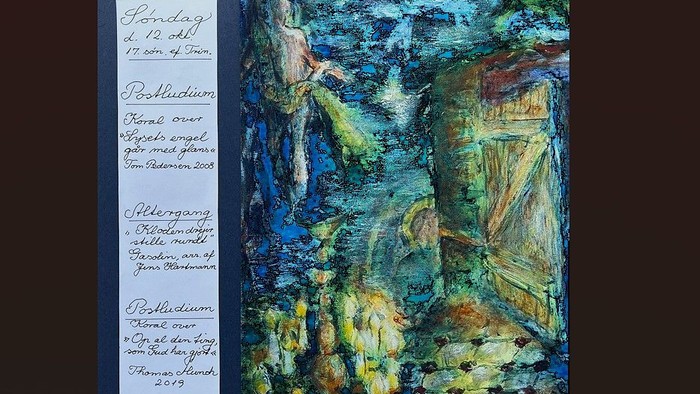 Søndag
d. 12. okt.
17. søn. ef. Trin.
Postludium
Koral over
"Lysets engel
går med glans"
Tom Pedersen 2008
Altergang
"Kloden drejer
stille rundt"
Gasolin, arr. af
Jens Hartmann
Postludium
Koral over
"Op al den ting,
som Gud har gjort"
Thomas Munch
2019